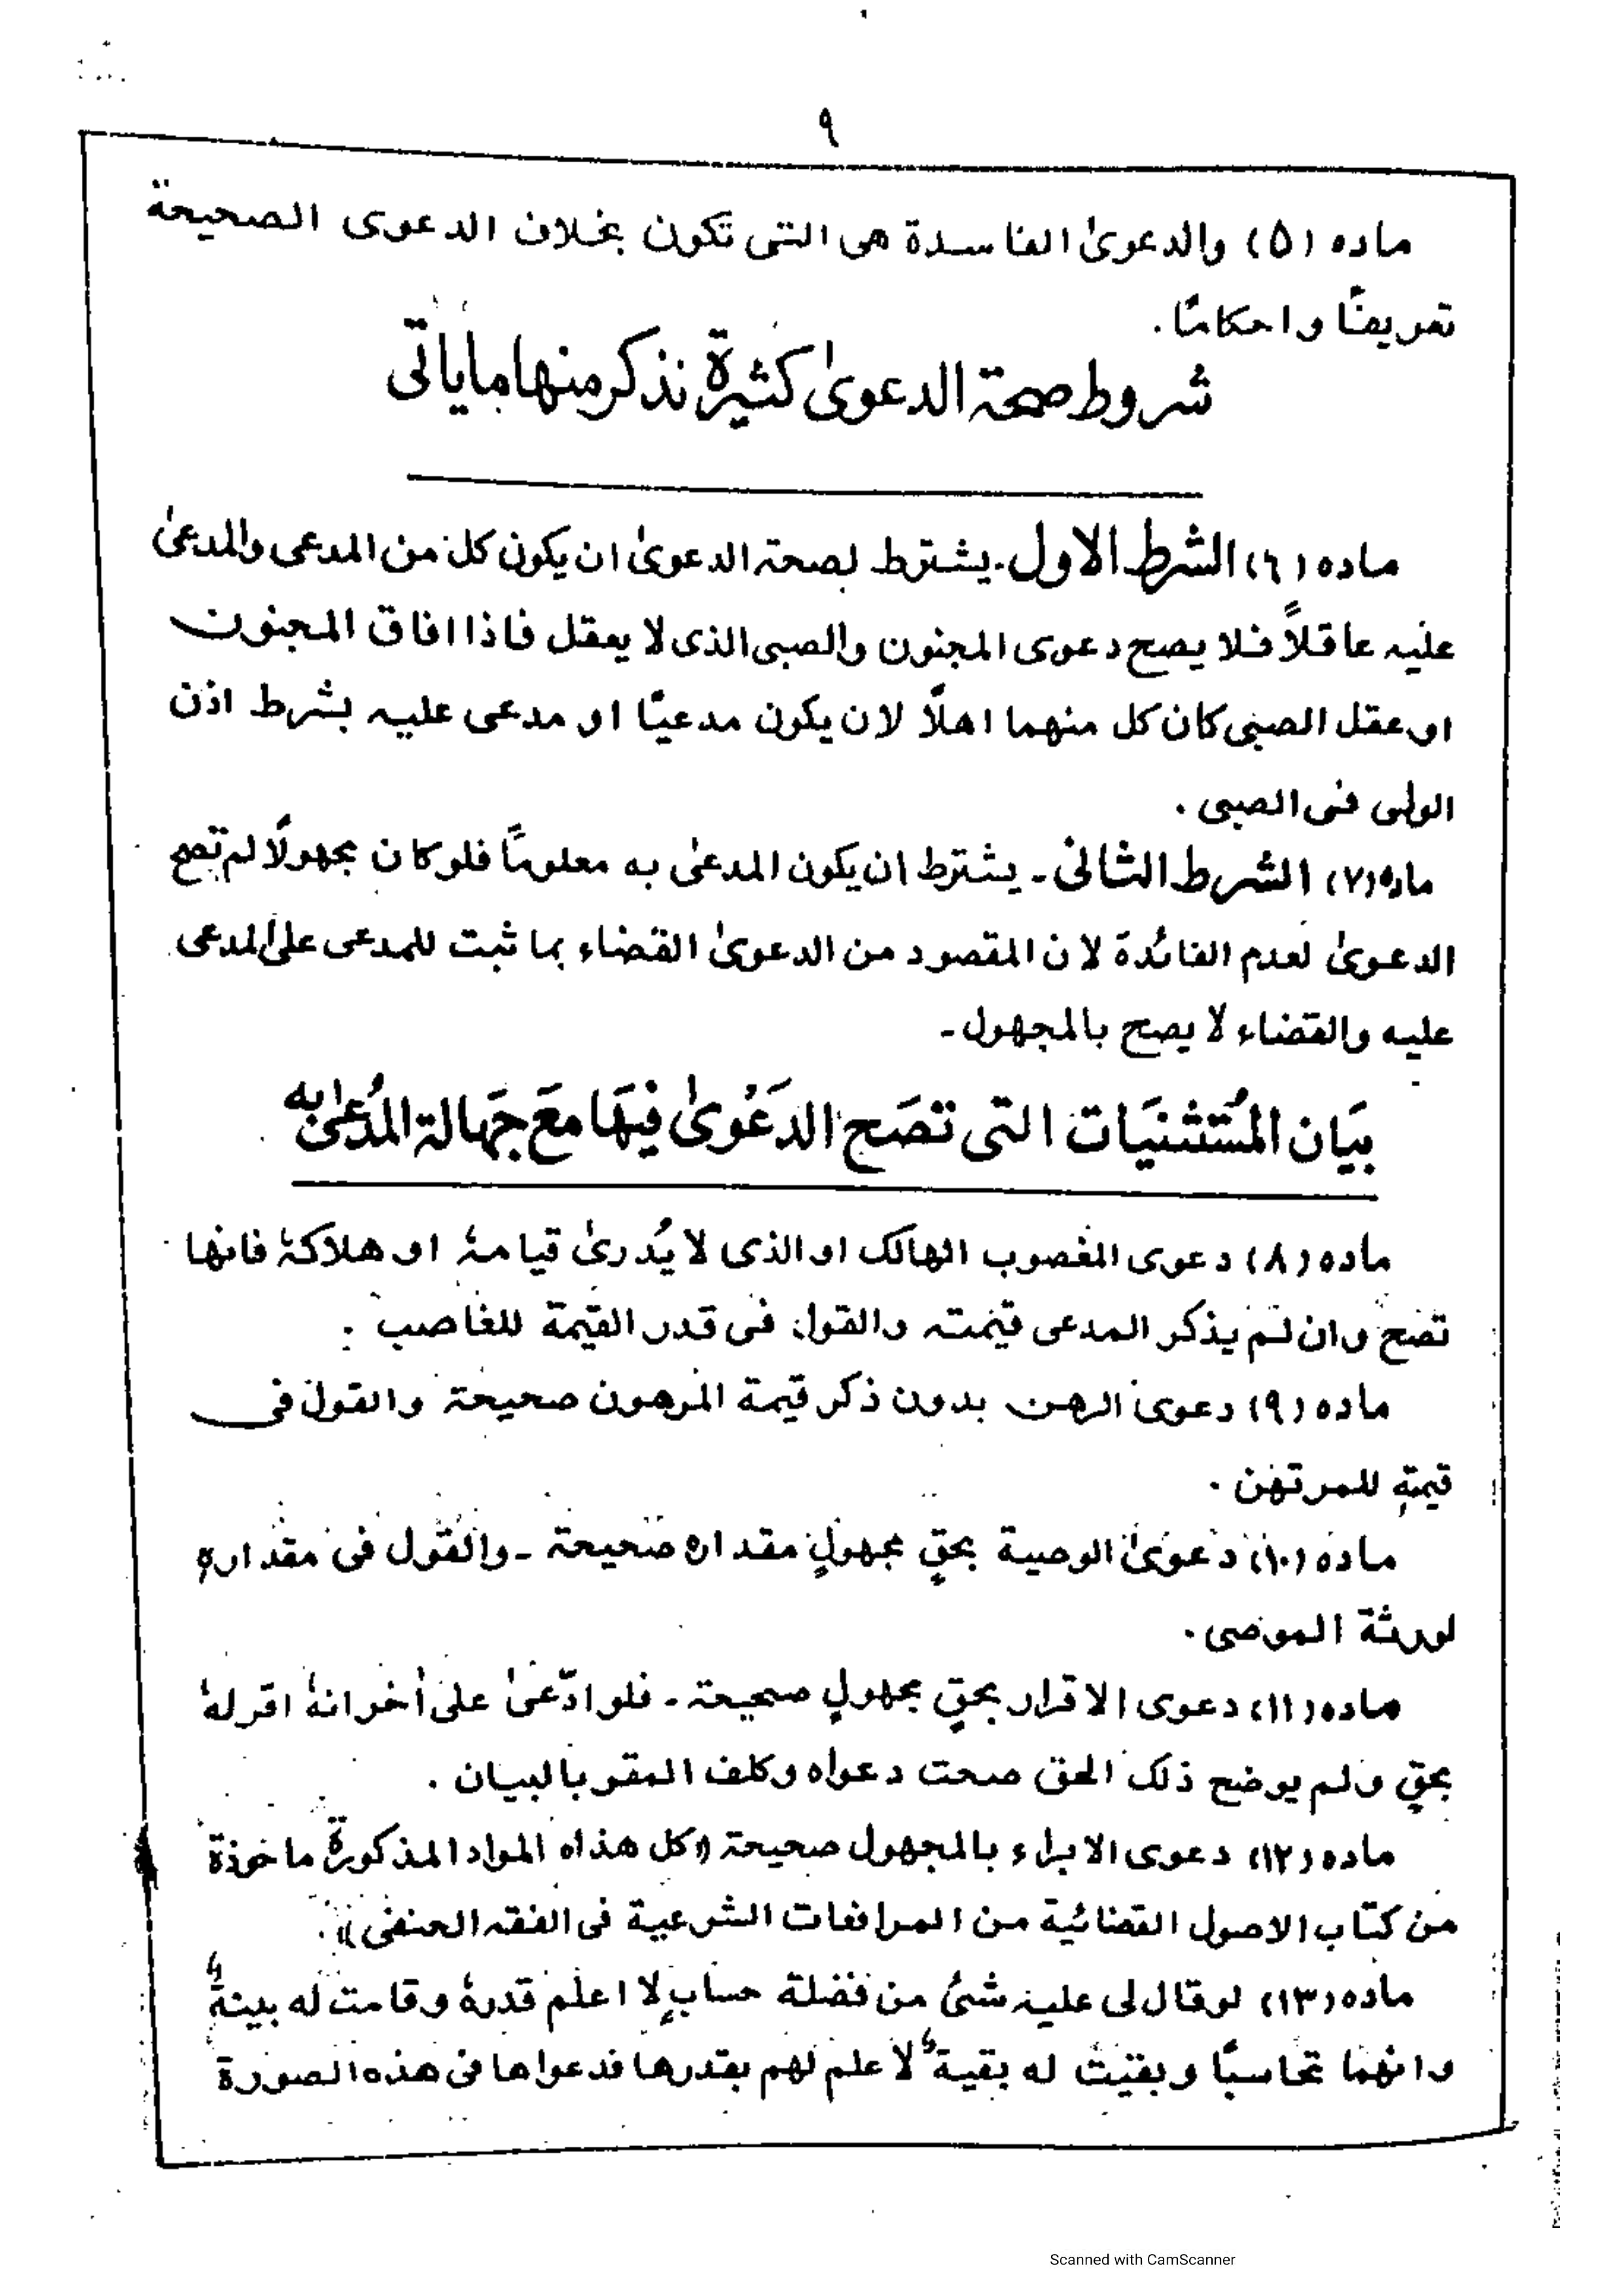 ٩
ماده (٥) والدعوىٰ الفاسدة هى التى تكون بخلاف الدعوى الصحيحة
تعريفًا واحكامًا.
شروط صحة الدعوىٰ كثيرة نذكر منها ماياتى
ماده (٦) الشرط الاول. يشترط لصحة الدعوىٰ ان يكون كل من المدعى والمدعىٰ
عليه عاقلاً فلا يصح دعوى المجنون والصبى الذى لا يعقل فاذا افاق المجنون
او عقل الصبى كان كل منهما اهلاً لان يكون مدعيًا او مدعى عليه بشرط اذن
الولى فى الصبى.
ماده (٧) الشرط الثانى ـ يشترط ان يكون المدعىٰ به معلومًا فلو كان مجهولًا لم تصح
الدعوىٰ لعدم الفائدة لان المقصود من الدعوىٰ القضاء بما ثبت للمدعى على المدعى
عليه والقضاء لا يصح بالمجهول ـ
بيَان المُستثنيَات التى تصَح الدَعْوىٰ فيهَا معَ جَهالة المُدعىٰ به
ماده (٨) دعوى المغصوب الهالك او الذى لا يُدرىٰ قيامهٗ او هلاكهٗ فانها
تصح وان لم يذكر المدعى قيمته والقول فى قدر القيمة للغاصب.
ماده (٩) دعوى الرهن بدون ذكر قيمة المرهون صحيحة والقول فى
قيمتهٖ للمرتهن.
ماده (١٠) دعوىٰ الوصية بحقٍ مجهولٍ مقداره صحيحة ـ والقول فى مقدارهٖ
لورثة الموصى.
ماده (١١) دعوى الاقرار بحقٍ مجهولٍ صحيحة ـ فلو ادّعىٰ على أخر انهٗ اقر لهٗ
بحقٍ ولم يوضح ذلك الحق صحت دعواه وكلف المقر بالبيان.
ماده (١٢) دعوى الابراء بالمجهول صحيحة ((كل هذاه المواد المذكورة ماخوذة
من كتاب الاصول القضائية من المرافعات الشرعية فى الفقه الحنفى)).
ماده (١٣) لو قال لى عليه شئ من فضلة حسابٍ لا اعلم قدرهٗ وقامت له بينةٌ
وانهما تحاسبًا وبقيت له بقيةٌ لا علم لهم بقدرها فدعواها فى هذه الصورة
Scanned with CamScanner